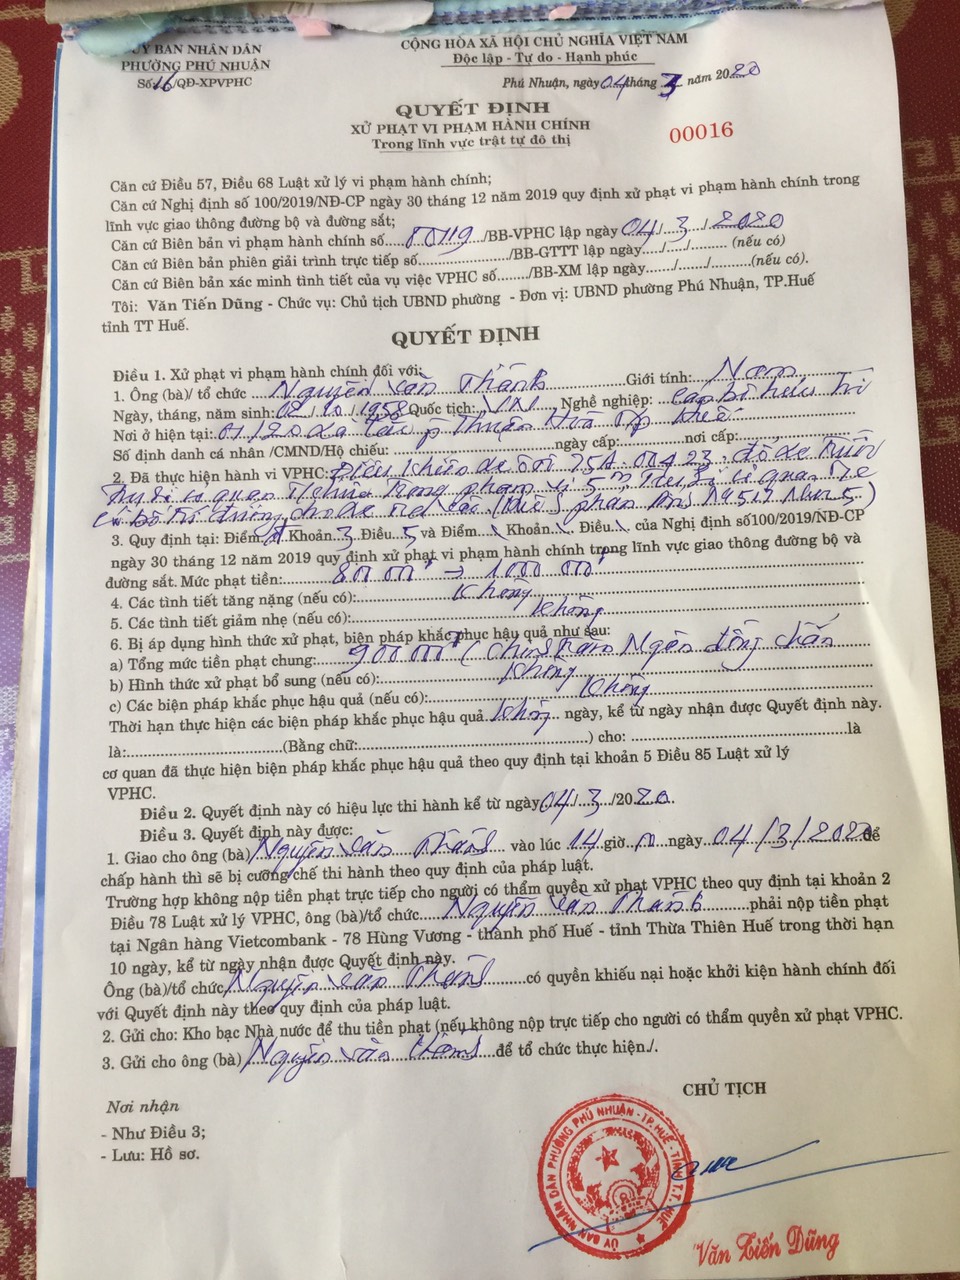 ỦY BAN NHÂN DÂN
PHƯỜNG PHÚ NHUẬN
Số 16/QĐ-XPVPHC
CỘNG HÒA XÃ HỘI CHỦ NGHĨA VIỆT NAM
Độc lập - Tự do - Hạnh phúc
Phú Nhuận, ngày 04 tháng 3 năm 2020
QUYẾT ĐỊNH
XỬ PHẠT VI PHẠM HÀNH CHÍNH
Trong lĩnh vực trật tự đô thị
00016
Căn cứ Điều 57, Điều 68 Luật xử lý vi phạm hành chính;
Căn cứ Nghị định số 100/2019/NĐ-CP ngày 30 tháng 12 năm 2019 quy định xử phạt vi phạm hành chính trong
lĩnh vực giao thông đường bộ và đường sắt;
Căn cứ Biên bản vi phạm hành chính số....00119../BB-VPHC lập ngày 04/.3../.2020
Căn cứ Biên bản phiên giải trình trực tiếp số................/BB-GTTT lập ngày...../...../......... (nếu có)
Căn cứ Biên bản xác minh tình tiết của vụ việc VPHC số......./BB-XM lập ngày......./......./.........(nếu có).
Tôi: Văn Tiến Dũng - Chức vụ: Chủ tịch UBND phường - Đơn vị: UBND phường Phú Nhuận, TP.Huế
tỉnh TT Huế.
QUYẾT ĐỊNH
Điều 1. Xử phạt vi phạm hành chính đối với:
1. Ông (bà)/ tổ chức ....Nguyễn Văn Thành............Giới tính:....Nam
Ngày, tháng, năm sinh: 02/10/1958 Quốc tịch: VN Nghề nghiệp: cán bộ hưu trí
Nơi ở hiện tại: 01/20 Thuận Hoà Tp Huế
Số định danh cá nhân /CMND/Hộ chiếu: ..................ngày cấp:..................nơi cấp:..................
2. Đã thực hiện hành vi VPHC: Điều khiển xe ôtô 75A.00423, đỗ xe trước
trụ sở cơ quan tổ chức trong phạm vi 5m, trụ sở cơ quan
có bố trí đường cho xe ra vào
3. Quy định tại: Điểm Khoản 3 Điều 5 và Điểm \ Khoản \ Điều \ của Nghị định số100/2019/NĐ-CP
ngày 30 tháng 12 năm 2019 quy định xử phạt vi phạm hành chính trong lĩnh vực giao thông đường bộ và
đường sắt. Mức phạt tiền: 800 000đ → 1000 000đ
4. Các tình tiết tăng nặng (nếu có): Không
5. Các tình tiết giảm nhẹ (nếu có): Không
6. Bị áp dụng hình thức xử phạt, biện pháp khắc phục hậu quả như sau:
a) Tổng mức tiền phạt chung: 900 000đ (Chín trăm Ngàn đồng chẵn
b) Hình thức xử phạt bổ sung (nếu có): Không
c) Các biện pháp khắc phục hậu quả (nếu có): Không
Thời hạn thực hiện các biện pháp khắc phục hậu quả Không ngày, kể từ ngày nhận được Quyết định này.
là:...........................(Bằng chữ:..........................................) cho: ..........................................là
cơ quan đã thực hiện biện pháp khắc phục hậu quả theo quy định tại khoản 5 Điều 85 Luật xử lý
VPHC.
Điều 2. Quyết định này có hiệu lực thi hành kể từ ngày 04/.3.../2020.
Điều 3. Quyết định này được:
1. Giao cho ông (bà) Nguyễn Văn Thành vào lúc 14 giờ 00 ngày 04/3/2020 để
chấp hành thì sẽ bị cưỡng chế thi hành theo quy định của pháp luật.
Trường hợp không nộp tiền phạt trực tiếp cho người có thẩm quyền xử phạt VPHC theo quy định tại khoản 2
Điều 78 Luật xử lý VPHC, ông (bà)/tổ chức....Nguyễn Văn Thành......phải nộp tiền phạt
tại Ngân hàng Vietcombank - 78 Hùng Vương - thành phố Huế - tỉnh Thừa Thiên Huế trong thời hạn
10 ngày, kể từ ngày nhận được Quyết định này.
Ông (bà)/tổ chức Nguyễn Văn Thành......có quyền khiếu nại hoặc khởi kiện hành chính đối
với Quyết định này theo quy định của pháp luật.
2. Gửi cho: Kho bạc Nhà nước để thu tiền phạt (nếu không nộp trực tiếp cho người có thẩm quyền xử phạt VPHC.
3. Gửi cho ông (bà) Nguyễn Văn Thành....để tổ chức thực hiện./.
CHỦ TỊCH
Nơi nhận
- Như Điều 3;
- Lưu: Hồ sơ.
ỦY BAN NHÂN DÂN PHƯỜNG PHÚ NHUẬN - TP.HUẾ - TỈNH T.T. HUẾ
Văn Tiến Dũng